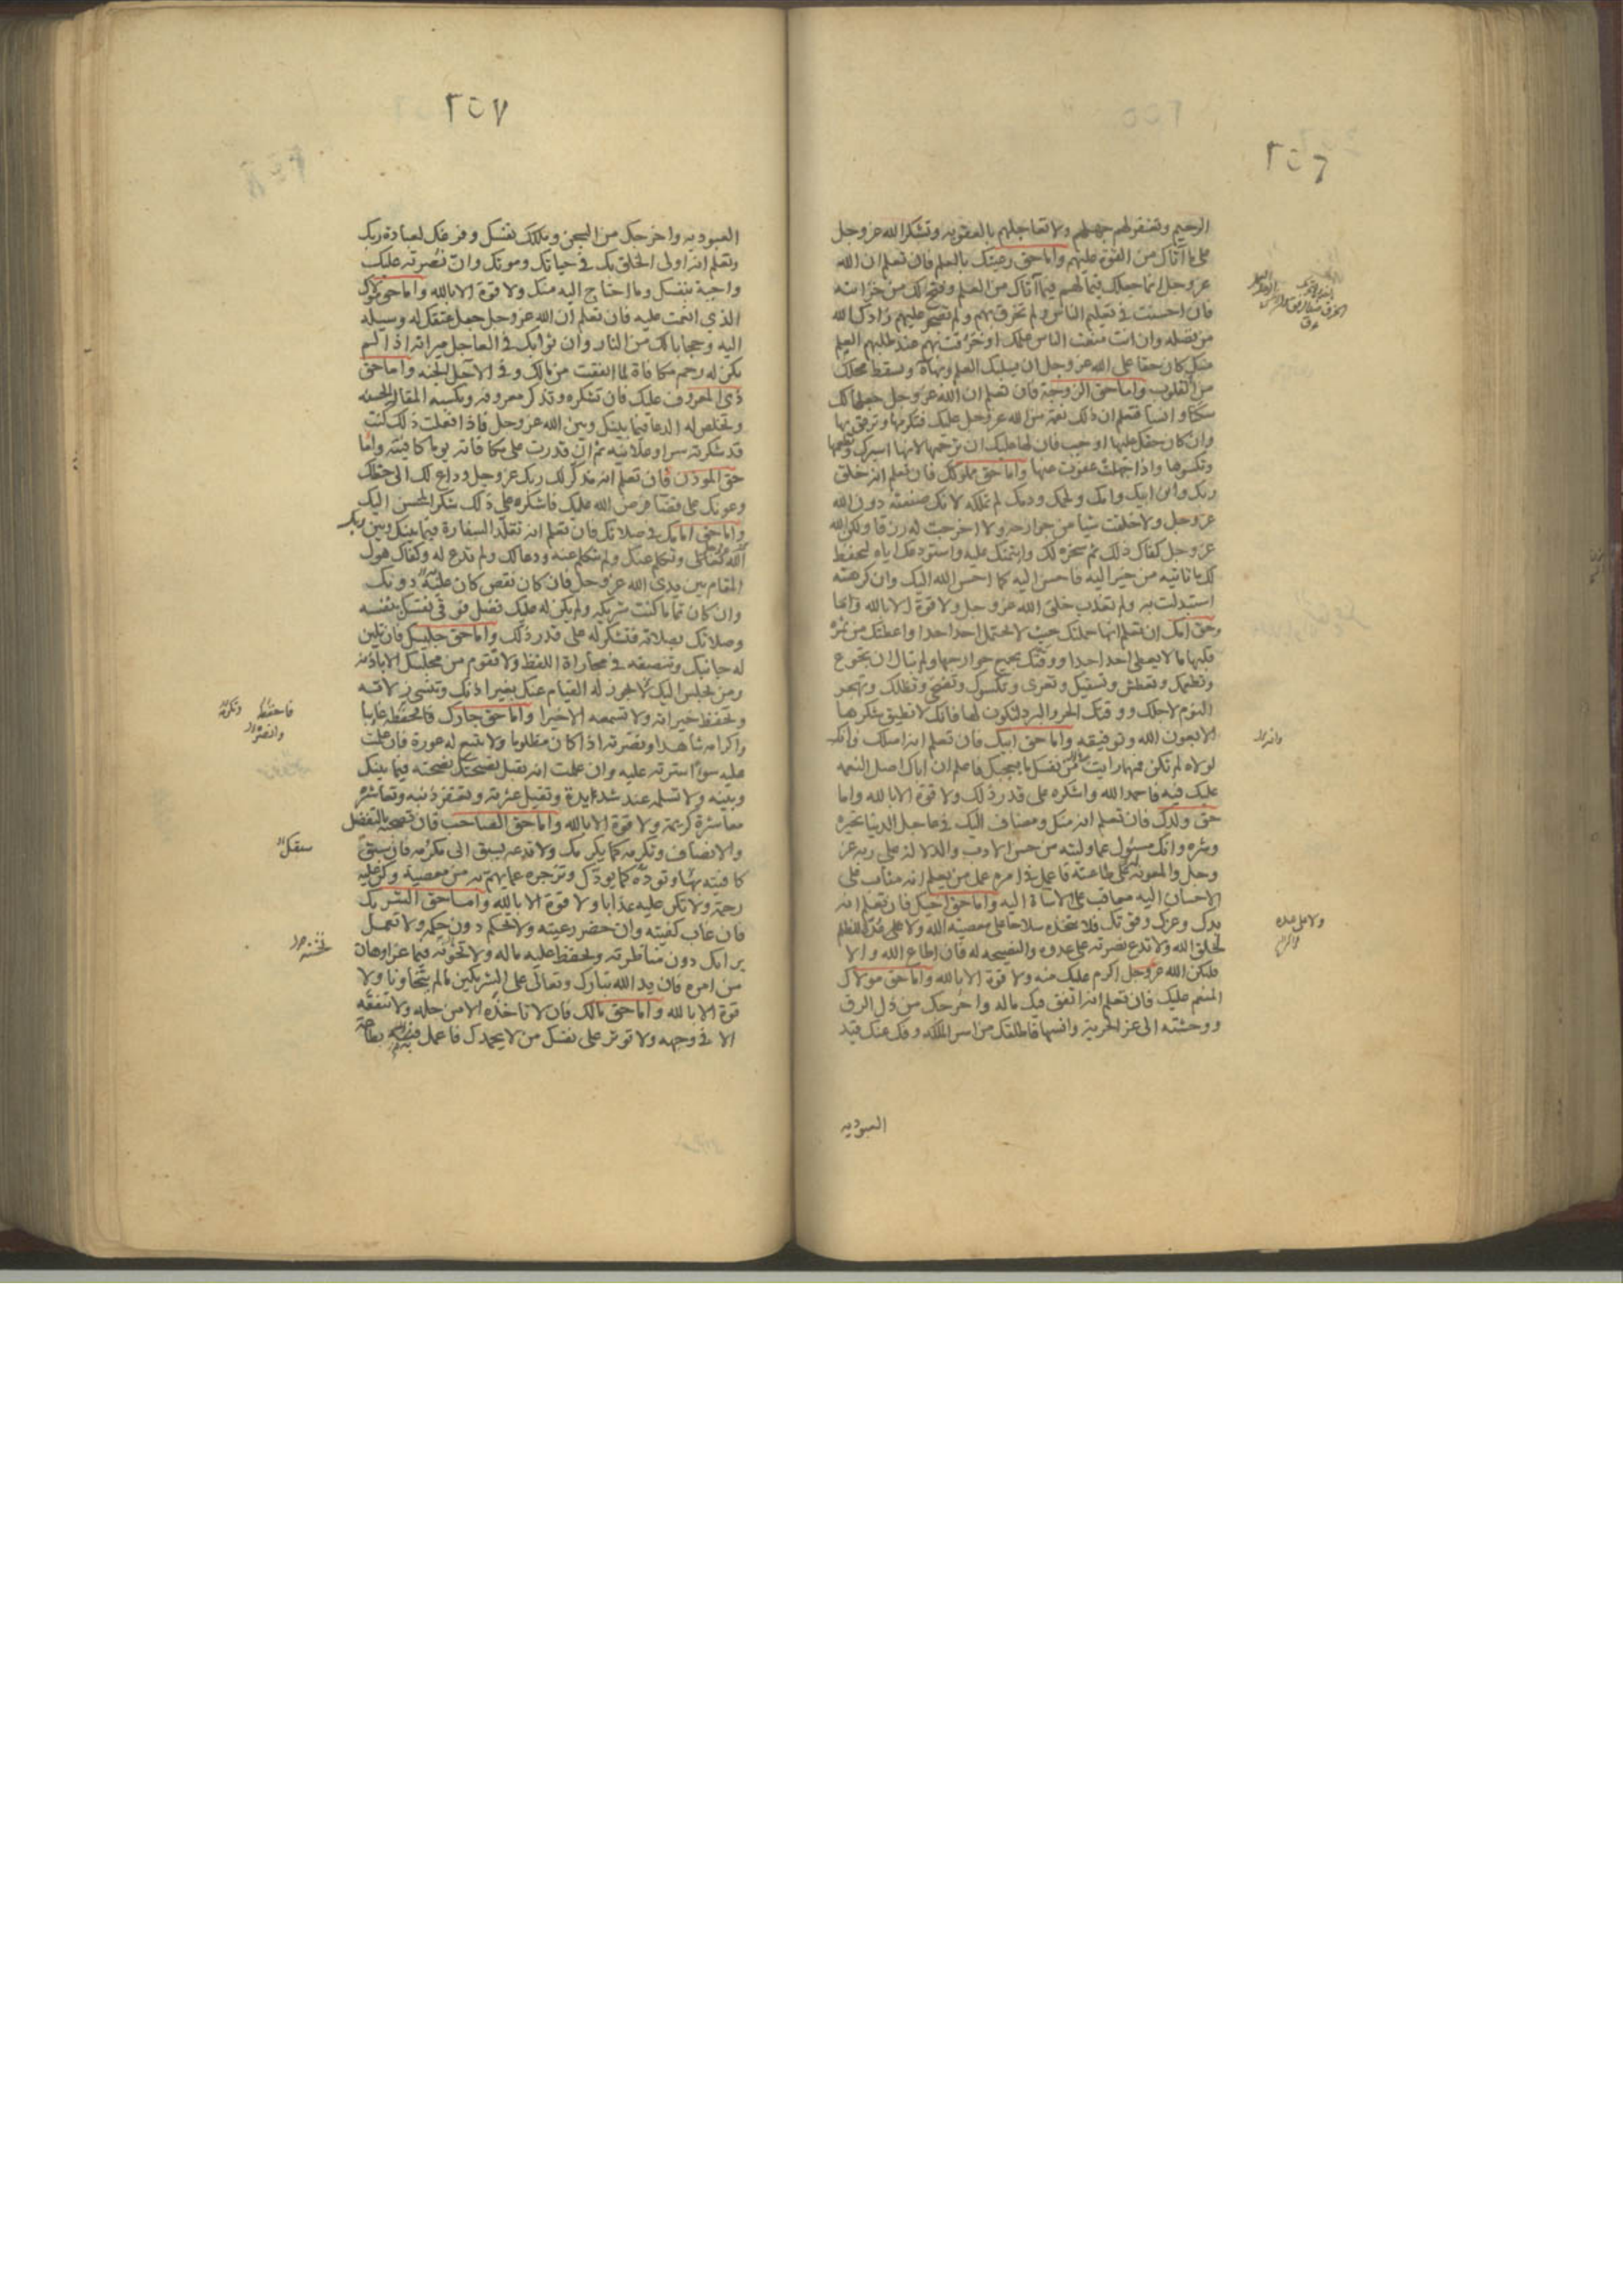 ٢٥٦
الرحيم وتغفر لهم جهلهم ولا تعاجلهم بالعقوبة وتشكر الله عز وجل
على ما آتاك من القوة عليهم واما حق رعيتك بالعلم فان تعلم ان الله
عز وجل انما جعلك قيما لهم فيما آتاك من العلم وفتح لك من خزائنه
فان احسنت في تعليم الناس ولم تخرق بهم ولم تضجر عليهم زادك الله
من فضله وان انت منعت الناس علمك او خرقت بهم عند طلبهم العلم
منك كان حقا على الله عز وجل ان يسلبك العلم وبهاءه ويسقط محلك
من القلوب واما حق الزوجة فان تعلم ان الله عز وجل جعلها لك
سكنا وانسا فتعلم ان ذلك نعمة من الله عز وجل عليك فتكرمها وترفق بها
وان كان حقك عليها اوجب فان لها عليك ان ترحمها لانها اسيرك وتطعمها
وتكسوها واذا جهلت عفوت عنها واما حق مملوكك فان تعلم انه خلق
ربك وابن ابيك وامك ولحمك ودمك لم تملكه لانك صنعته دون الله
عز وجل ولا خلقت شيا من جوارحه ولا اخرجت له رزقا ولكن الله
عز وجل كفاك ذلك ثم سخره لك وايتمنك عليه واستودعك اياه ليحفظ
لك ما تاتيه من خير اليه فاحسن اليه كما احسن الله اليك وان كرهته
استبدلت به ولم تعذب خلق الله عز وجل ولا قوة الا بالله واما
وحق امك ان تعلم انها حملتك حيث لا يحتمل احد احدا واعطتك من ثمرة
قلبها ما لا يعطى احد احدا ووقتك بجميع جوارحها ولم تبال ان تجوع
وتطعمك وتعطش وتسقيك وتعرى وتكسوك وتضحى وتظلك وتهجر
النوم لاجلك ووقتك الحر والبرد لتكون لها فانك لا تطيق شكرها
الا بعون الله وتوفيقه واما حق ابيك فان تعلم انه اصلك وانك
لولاه لم تكن فمهما رايت من نفسك ما يعجبك فاعلم ان اباك اصل النعمة
عليك فيه فاحمد الله واشكره على قدر ذلك ولا قوة الا بالله واما
حق ولدك فان تعلم انه منك ومضاف اليك في عاجل الدنيا بخيره
وشره وانك مسئول عما وليته من حسن الادب والدلالة على ربه عز
وجل والمعونة له على طاعته فاعمل في امره عمل من يعلم انه مثاب على
الاحسان اليه معاقب على الاساءة اليه واما حق اخيك فان تعلم انه
يدك وعزك وقوتك فلا تتخذه سلاحا على معصية الله ولا على عدة للظلم
لخلق الله ولا تدع نصرته على عدوه والنصيحة له فان اطاع الله والا
فليكن الله عز وجل اكرم عليك منه ولا قوة الا بالله واما حق مولاك
المنعم عليك فان تعلم انه انفق فيك ماله واخرجك من ذل الرق
ووحشته الى عز الحرية وانسها فاطلقك من اسر الملكة وفك عنك قيد
العبودية
٢٥٧
العبودية واخرجك من السجن وملكك نفسك وفرغك لعبادة ربك
وتعلم انه اولى الخلق بك في حياتك وموتك وان نصرته عليك
واجبة بنفسك وما احتاج اليه منك ولا قوة الا بالله واما حق مولاك
الذي انعمت عليه فان تعلم ان الله عز وجل جعل عتقك له وسيلة
اليه وحجابا لك من النار وان ثوابك في العاجل ميراثه اذا لم
يكن له رحم مكافاة لما انفقت من مالك وفي الاجل الجنة واما حق
ذي المعروف عليك فان تشكره وتذكر معروفه وتكسبه المقالة الحسنة
وتخلص له الدعا فيما بينك وبين الله عز وجل فاذا فعلت ذلك كنت
قد شكرته سرا وعلانية ثم ان قدرت على مكافاته يوما كافيته واما
حق الموذن فان تعلم انه مذكر لك ربك عز وجل وداع لك الى حظك
وعونك على قضا فرض الله عليك فاشكره على ذلك شكر المحسن اليك
واما حق امامك في صلاتك فان تعلم انه تقلد السفارة فيما بينك وبين ربك
وتكلم عنك ولم تتكلم عنه ودعا لك ولم تدع له وكفاك هول
المقام بين يدي الله عز وجل فان كان نقص كان عليه دونك
وان كان تماما كنت شريكه ولم يكن له عليك فضل فوقى نفسك بنفسه
وصلاتك بصلاته فتشكر له على قدر ذلك واما حق جليسك فان تلين
له جانبك وتنصفه في مجاراة اللفظ ولا تقوم من مجلسك الا باذنه
ومن يجلس اليك يجوز له القيام عنك بغير اذنك وتنسى زلاته
وتحفظ خيراته ولا تسمعه الا خيرا واما حق جارك فاحفظه غايبا
واكرامه شاهدا ونصرته اذا كان مظلوما ولا تتبع له عورة فان علمت
عليه سوءا سترته عليه وان علمت انه يقبل نصيحتك نصحته فيما بينك
وبينه ولا تسلمه عند شديدة وتقيل عثرته وتغفر ذنبه وتعاشره
معاشرة كريمة ولا قوة الا بالله واما حق الصاحب فان تصحبه بالتفضل
والانصاف وتكرمه كما يكرمك ولا تدعه يسبق الى مكرمة فان سبق
كافيته بها وتوده كما يودك وتزجره عما يهم به من معصية وكن عليه
رحمة ولا تكن عليه عذابا ولا قوة الا بالله واما حق الشريك
فان غاب كفيته وان حضر رعيته ولا تحكم دون حكمه ولا تعمل
برايك دون مناظرته وتحفظ عليه ماله ولا تخونه فيما عز او هان
من امره فان يد الله تبارك وتعالى على الشريكين ما لم يتخاونا ولا
قوة الا بالله واما حق مالك فان لا تاخذه الا من حله ولا تنفقه
الا في وجهه ولا توثر على نفسك من لا يحمدك فاعمل فيه بطاعة